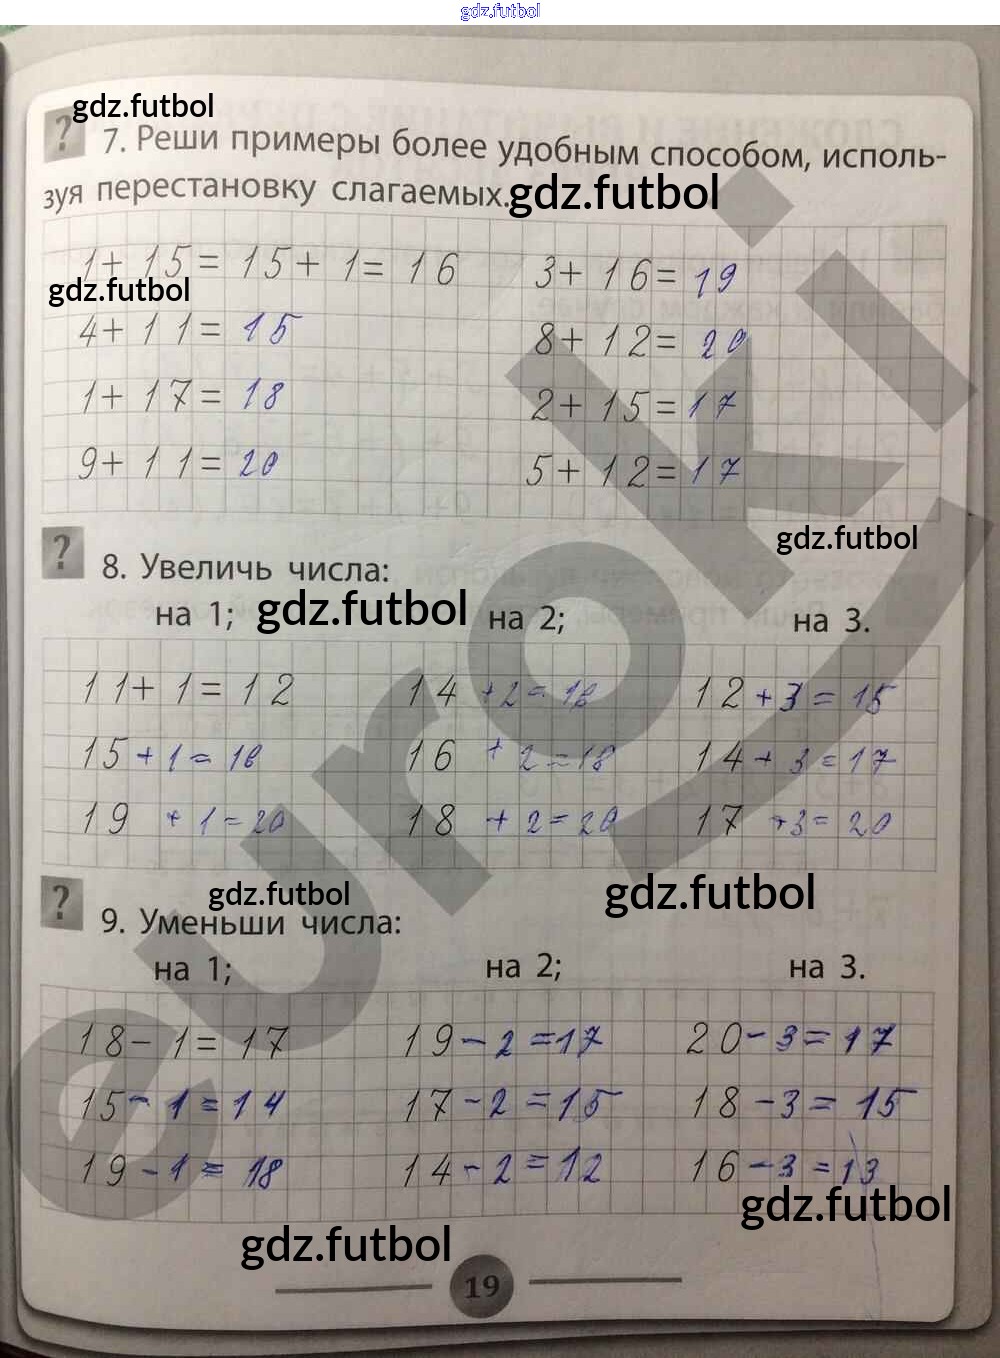 gdz.futbol
gdz.futbol
? 7. Реши примеры более удобным способом, исполь-
зуя перестановку слагаемых. gdz.futbol
1 + 15 = 15 + 1 = 16 3 + 16 = 19
gdz.futbol
4 + 11 = 15 8 + 12 = 20
1 + 17 = 18 2 + 15 = 17
9 + 11 = 20 5 + 12 = 17
gdz.futbol
? 8. Увеличь числа:
на 1; gdz.futbol на 2; на 3.
11 + 1 = 12 14 + 2 = 16 12 + 3 = 15
15 + 1 = 16 16 + 2 = 18 14 + 3 = 17
19 + 1 = 20 18 + 2 = 20 17 + 3 = 20
gdz.futbol gdz.futbol
? 9. Уменьши числа:
на 1; на 2; на 3.
18 - 1 = 17 19 - 2 = 17 20 - 3 = 17
15 - 1 = 14 17 - 2 = 15 18 - 3 = 15
19 - 1 = 18 14 - 2 = 12 16 - 3 = 13
gdz.futbol
gdz.futbol
19
euroki